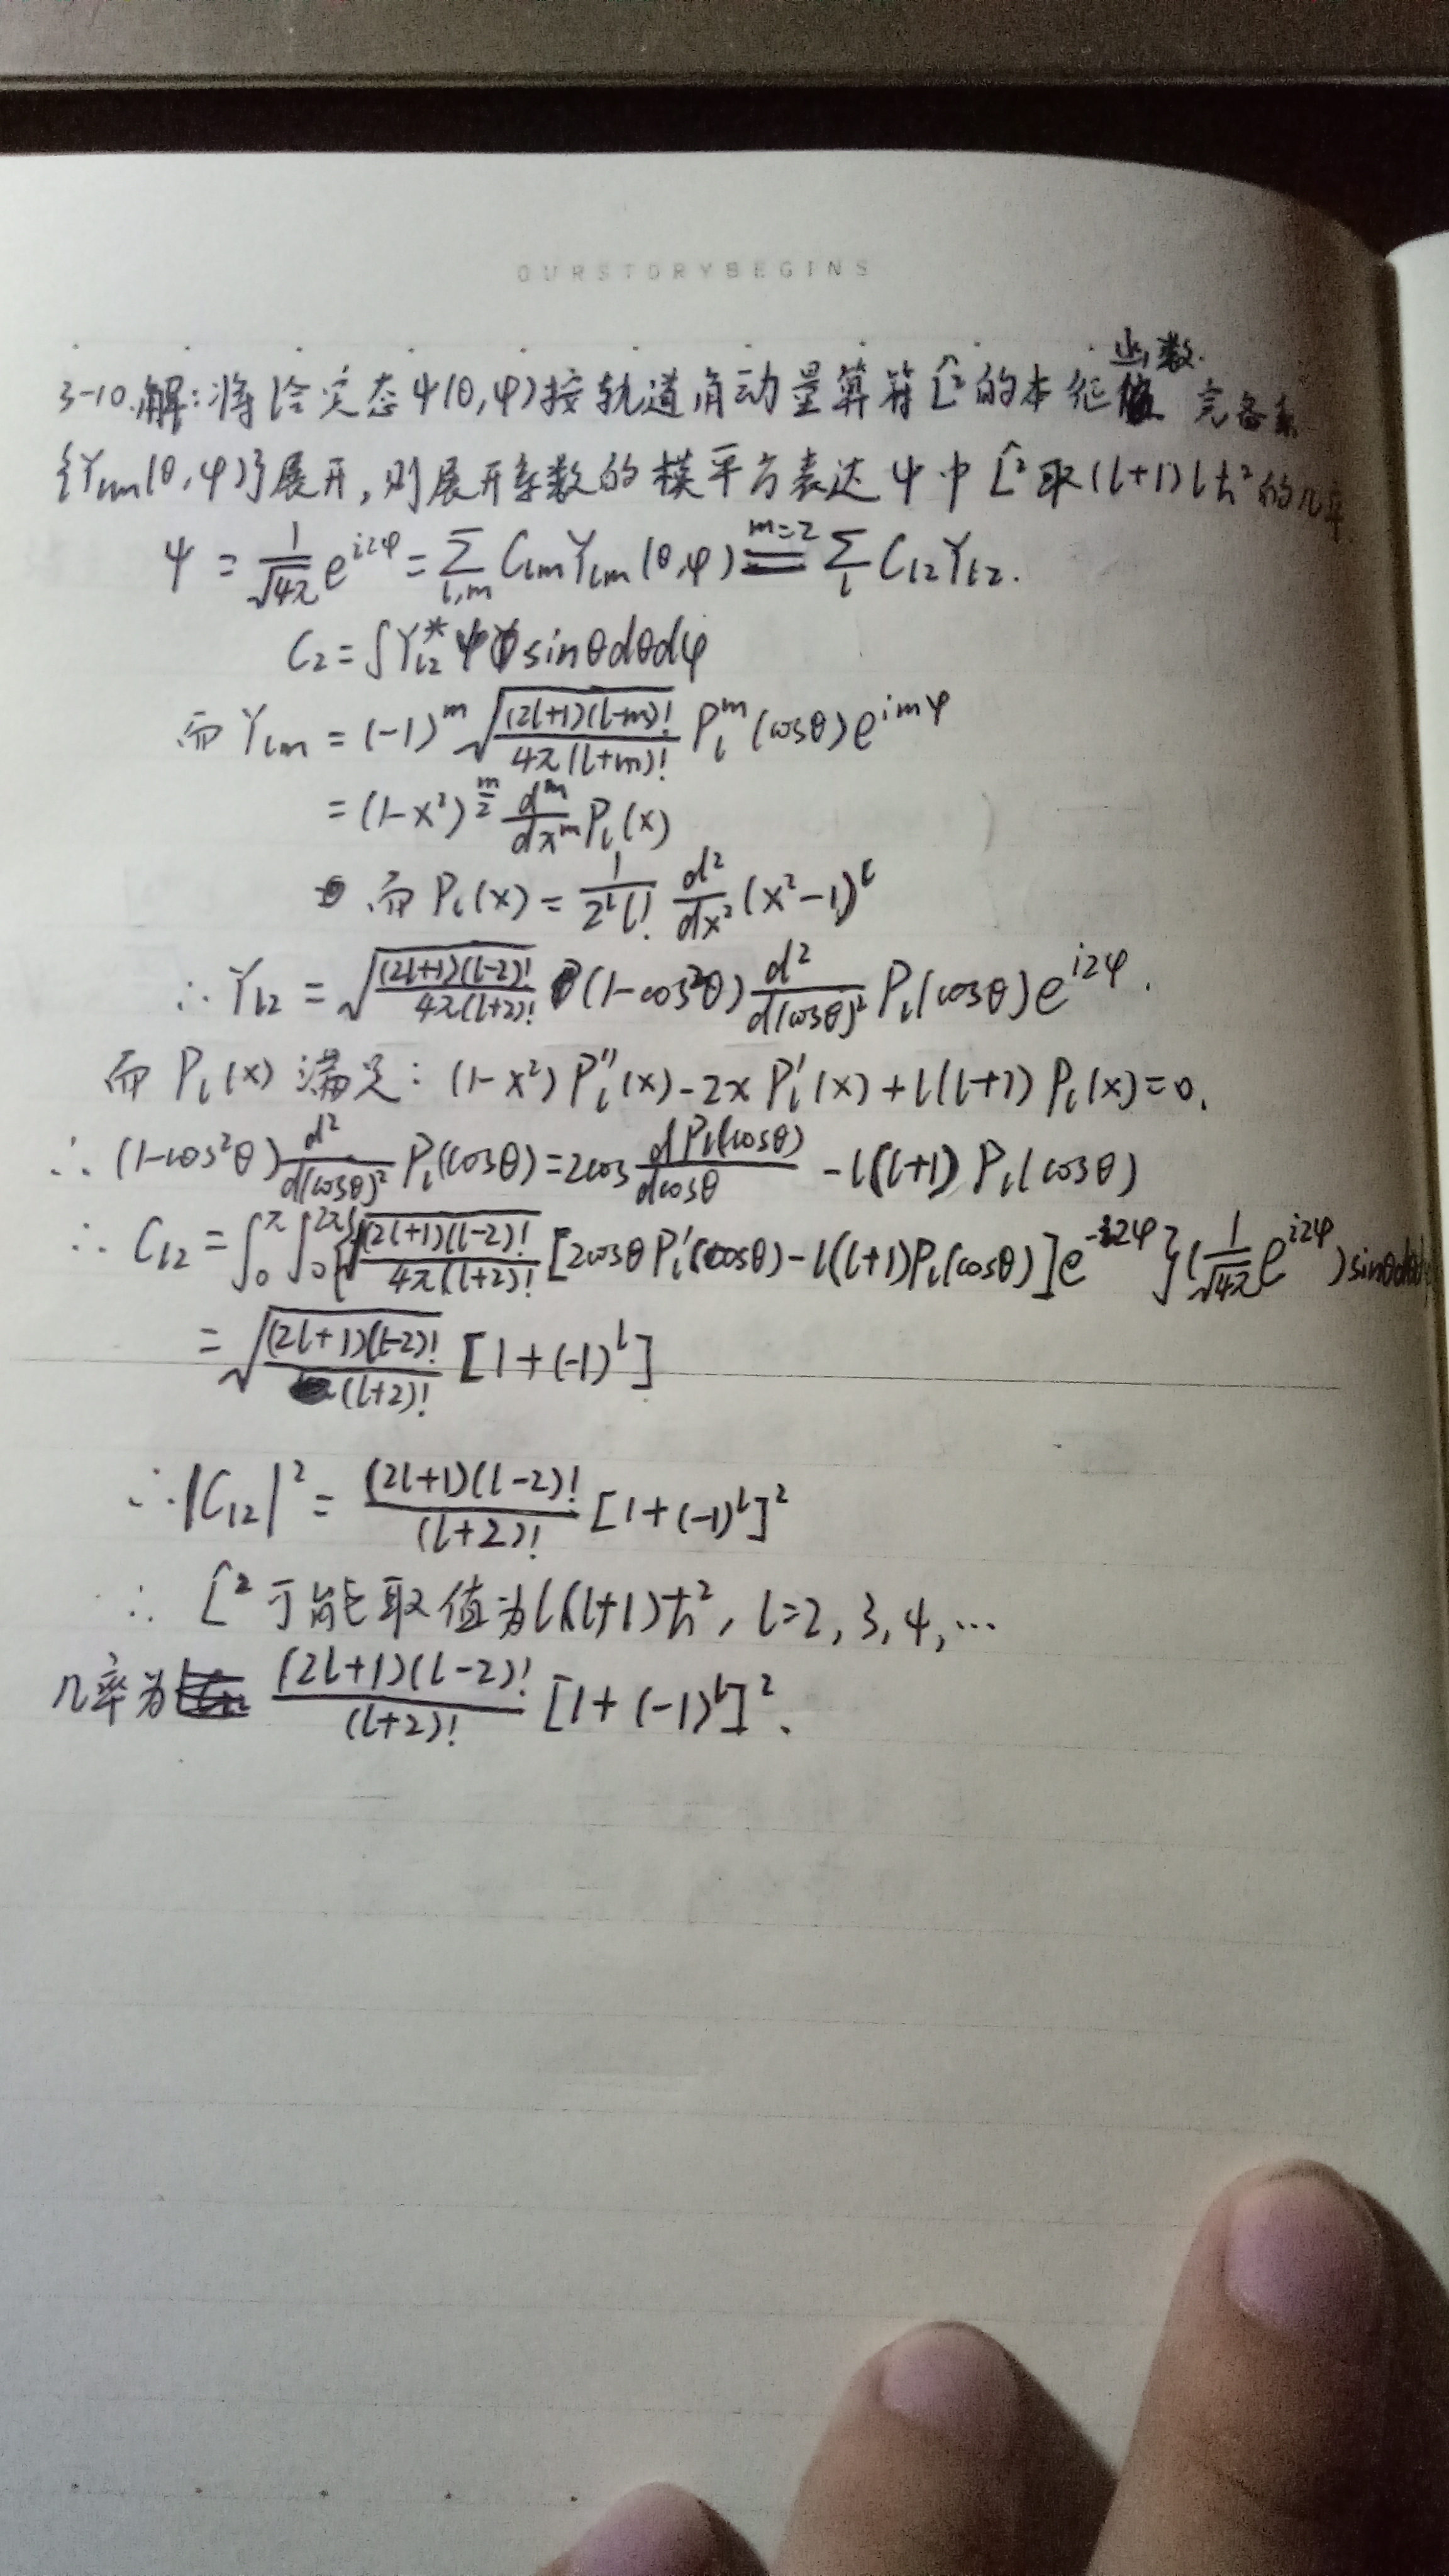 OURSTORYBEGINS
函数
3-10.解:将给定态ψ(θ,φ)按轨道角动量算符L̂²的本征 完备系
{Yₗₘ(θ,φ)}展开,则展开系数的模平方表达ψ中L̂²取(l+1)lħ²的几率
ψ = 1/√4π e^{i2φ} = Σ_{l,m} C_{lm}Y_{lm}(θ,φ) =^{m=2} Σ_l C_{l2}Y_{l2}.
C₂ = ∫Y_{l2}^* ψ sinθdθdφ
而 Y_{lm} = (-1)^m √((2l+1)(l-m)!/4π(l+m)!) P_l^m(cosθ)e^{imφ}
= (1-x²)^{m/2} d^m/dx^m P_l(x)
而 P_l(x) = 1/(2^l l!) d²/dx² (x²-1)^l
∴ Y_{l2} = √((2l+1)(l-2)!/4π(l+2)!) (1-cos²θ) d²/d(cosθ)² P_l(cosθ)e^{i2φ}.
而 P_l(x) 满足: (1-x²)P_l''(x)-2xP_l'(x)+l(l+1)P_l(x)=0.
∴ (1-cos²θ) d²/d(cosθ)² P_l(cosθ)=2cos dP_l(cosθ)/dcosθ -l(l+1)P_l(cosθ)
∴ C_{l2} = ∫_0^π ∫_0^{2π} {√((2l+1)(l-2)!/4π(l+2)!) [2cosθP_l'(cosθ)-l(l+1)P_l(cosθ)]e^{-i2φ}}(1/√4π e^{i2φ})sinθdθd
= √((2l+1)(l-2)!/(l+2)!) [1+(-1)^l]
∴|C_{l2}|² = (2l+1)(l-2)!/(l+2)! [1+(-1)^l]²
∴ L² 可能取值为l(l+1)ħ², l=2,3,4,…
几率为 (2l+1)(l-2)!/(l+2)! [1+(-1)^l]²、